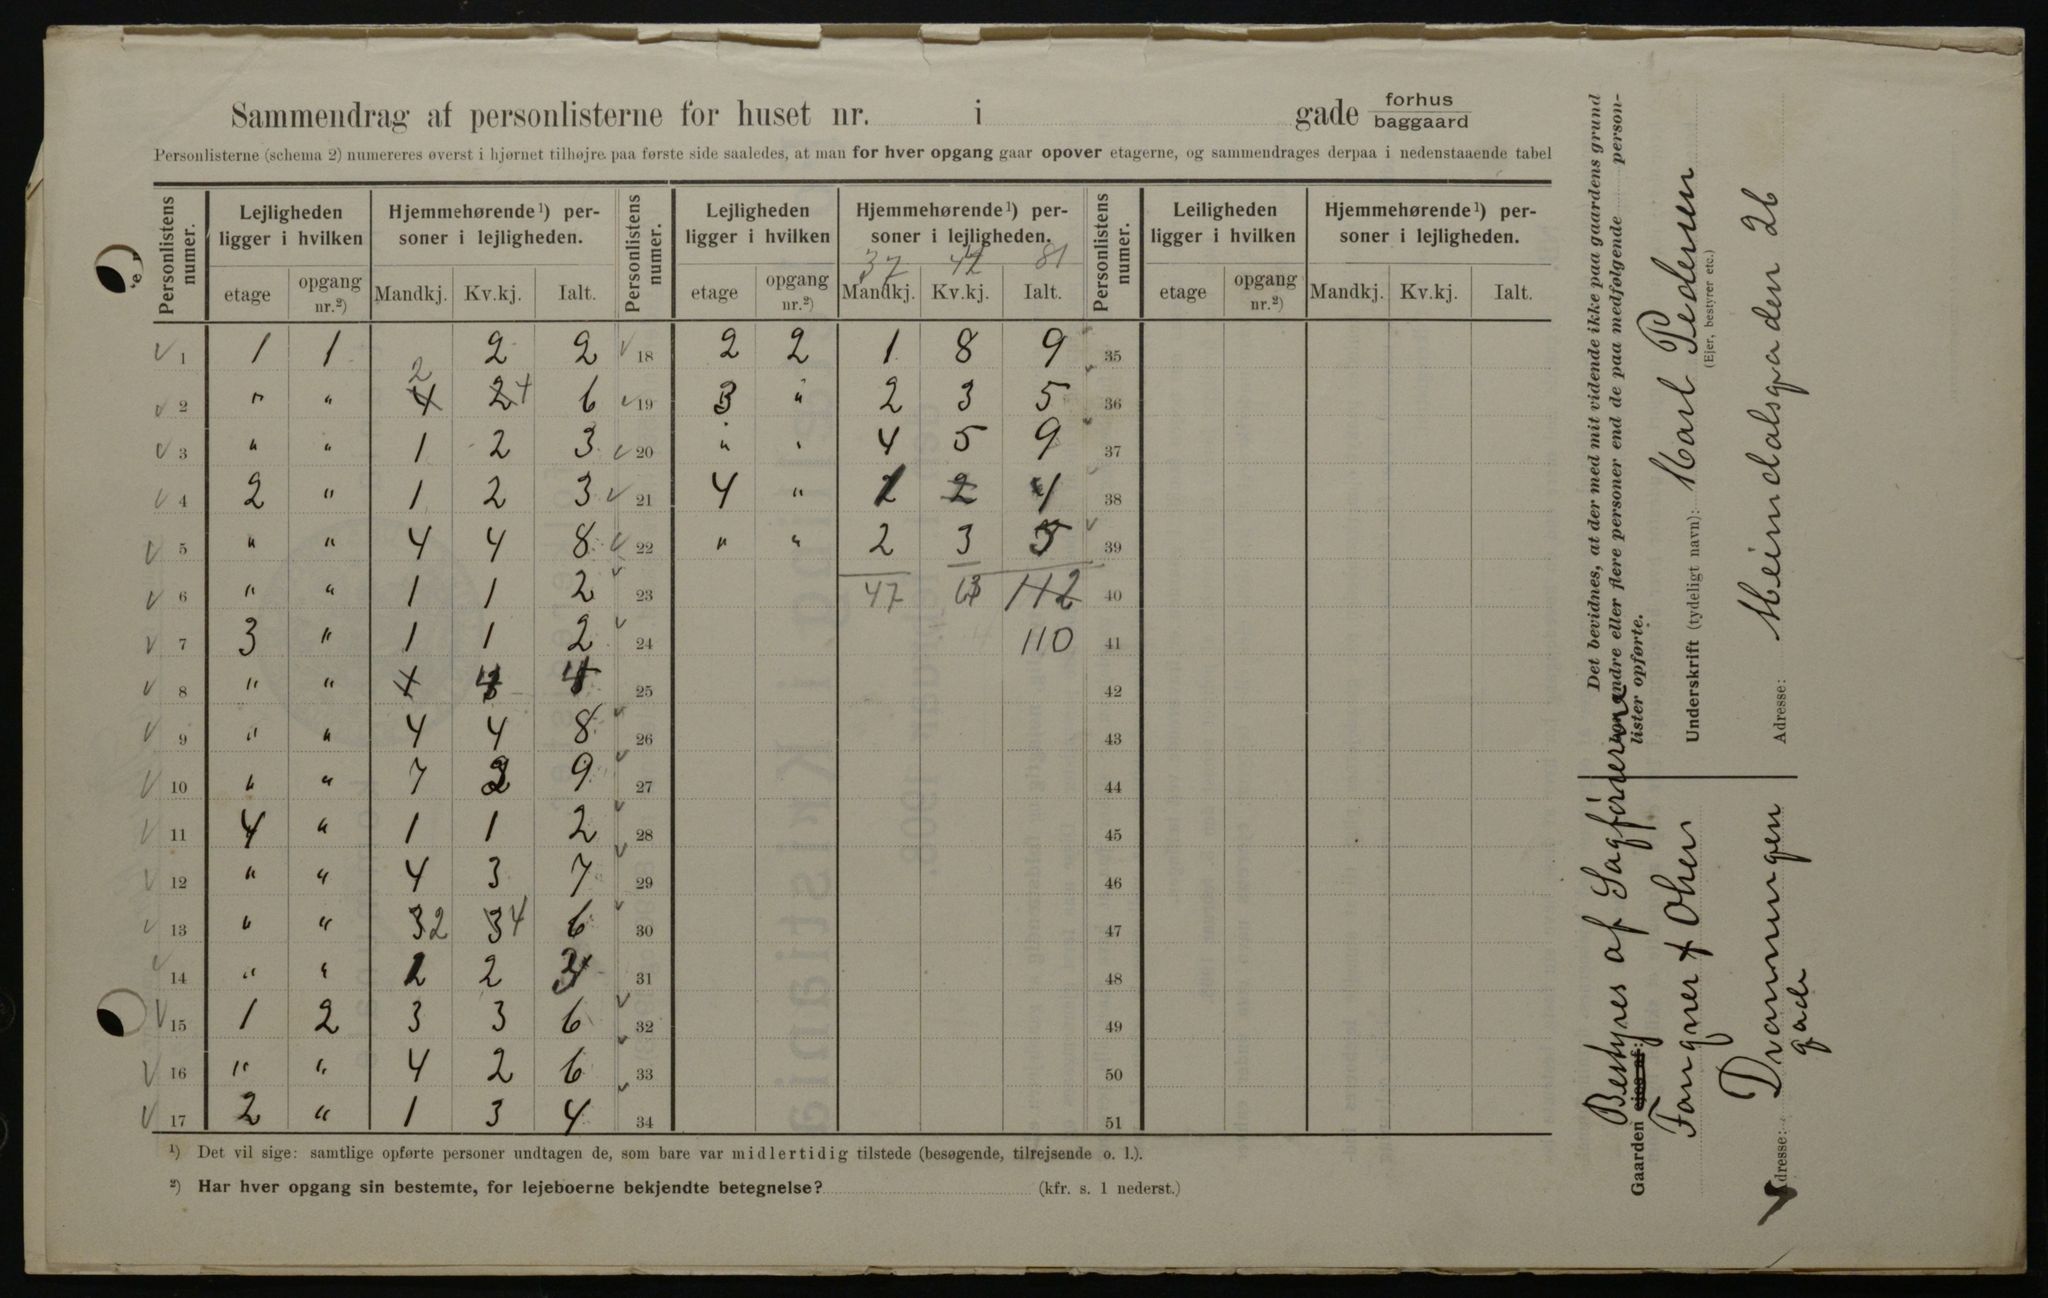 Sammendrag af personlisterne for huset nr. i gade forhus baggaard
Personlisterne (schema 2) numereres øverst i hjørnet tilhøjre paa første side saaledes, at man for hver opgang gaar opover etagerne, og sammendrages derpaa i nedenstaaende tabel
Personlistens numer. Lejligheden ligger i hvilken Hjemmehørende ¹) personer i lejligheden. Personlistens numer. Lejligheden ligger i hvilken Hjemmehørende ¹) personer i lejligheden. Personlistens numer. Leiligheden ligger i hvilken Hjemmehørende ¹) personer i lejligheden.
37 42 81
etage opgang nr.²) Mandkj. Kv.kj. Ialt. etage opgang nr.²) Mandkj. Kv.kj. Ialt. etage opgang nr.²) Mandkj. Kv.kj. Ialt.
1 1 1 2 2 18 2 2 1 8 9 35
2 " " 4 2 2 4 6 19 3 " 2 3 5 36
3 " " 1 2 3 20 " " 4 5 9 37
4 2 " 1 2 3 21 4 " 2 4 38
5 " " 4 4 8 22 " " 2 3 5 39
6 " " 1 1 2 23 47 63 112 40
7 3 " 1 1 2 24 110 41
8 " " 4 25 42
9 " " 4 4 8 26 43
10 " " 7 2 9 27 44
11 4 " 1 1 2 28 45
12 " " 4 3 7 29 46
13 " " 3 2 3 4 6 30 47
14 " " 2 31 48
15 1 2 3 3 6 32 49
16 " " 4 2 6 33 50
17 2 " 1 3 4 34 51
¹) Det vil sige: samtlige opførte personer undtagen de, som bare var midlertidig tilstede (besøgende, tilrejsende o. l.).
²) Har hver opgang sin bestemte, for lejeboerne bekjendte betegnelse? (kfr. s. 1 nederst.)
Det bevidnes, at der med mit vidende ikke paa gaardens grund
bor andre eller flere personer end de paa medfølgende personlister opførte.
Underskrift (tydeligt navn): Karl Pedersen
(Ejer, bestyrer etc.)
Adresse: Heimdalsgaden 26
Bestyres af Sagfører
Gaarden ejes af:
Fougner & Olsen
Adresse: Dronningen
gade